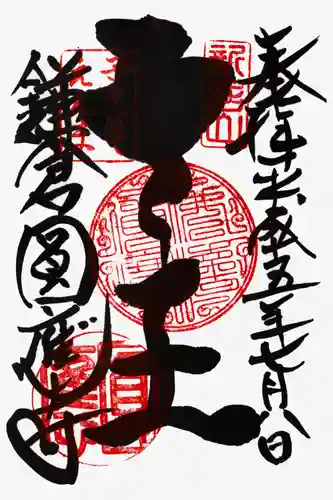 奉拝 平成十五年七月八日
新居山
十王
鎌倉圓應寺